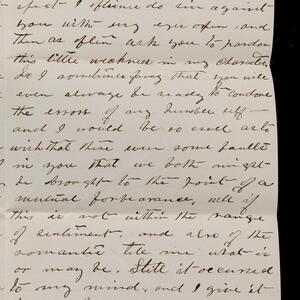 effect I please do sin against
you with my eyes open, and
then as often ask you to pardon
this little weakness in my character
& I sometimes pray that you will
even always be ready to condone
the errors of my humble self
and I would be so cruel as to
wish that there were some faults
in you that we both might
be brought to the point of a
mutual forbearance, well if
this is not within the range
of sentiment, and also of the
romantic tell me what is
or may be. Still it occurred
to my mind, and I give it